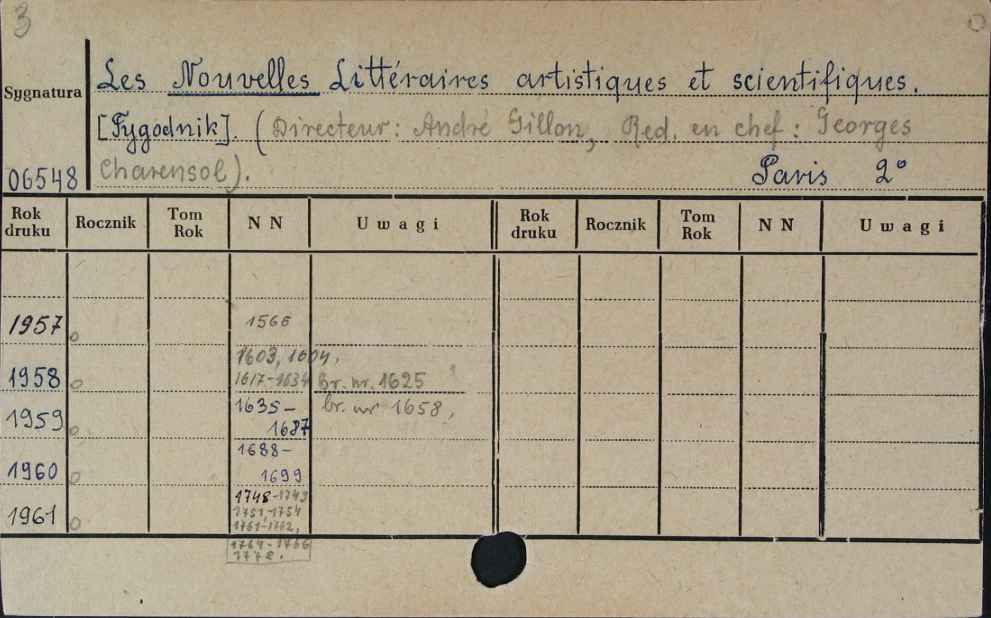 3
Sygnatura
06548
Les Nouvelles Littéraires artistiques et scientifiques.
[Tygodnik]. (Directeur: André Gillon, Red. en chef: Georges
Charensol).
Paris 2°
Rok druku Rocznik Tom Rok N N Uwagi Rok druku Rocznik Tom Rok N N Uwagi
1957 1566
1603, 1604,
1958 1617-1634 Br. nr. 1625
1959 1635- br. nr 1658,
1687
1960 1688-
1699
1961 1748-1749
1751-1754
1761-1762,
1764-1766
1772.